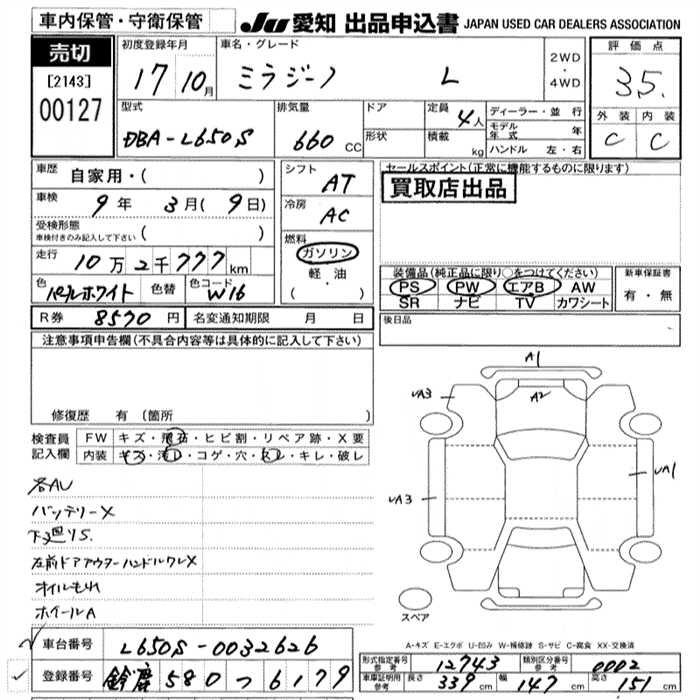 車内保管・守衛保管
JU 愛知 出品申込書 JAPAN USED CAR DEALERS ASSOCIATION
売切
[2143]
00127
初度登録年月 17 10月
車名・グレード ミラジーノ L
2WD・4WD
評価点 3.5
外装 内装
C C
型式 DBA-L650S
排気量 660 CC
ドア
形状
定員 4人
積載 kg
ディーラー・並行
モデル年式 年
ハンドル 左・右
車歴 自家用・( )
車検 9年 3月(9日)
受検形態
車検付きのみ記入して下さい ( )
走行 10万2千777km
色 パールホワイト 色替 色コード W16
シフト AT
冷房 AC
燃料 ガソリン
軽油
( ・ )
セールスポイント(正常に機能するものに限ります)
買取店出品
装備品(純正品に限り○をつけてください)
PS PW エアB AW
SR ナビ TV カワシート
新車保証書
有・無
R券 8570円 名変通知期限 月 日
後日品
注意事項申告欄(不具合内容等は具体的に記入して下さい)
修復歴 有(箇所 )
検査員記入欄
FW キズ・飛石・ヒビ割・リペア跡・X要
内装 キズ・汚レ・コゲ・穴・スレ・キレ・破レ
各AU
バッテリーX
下廻りS.
左前ドアアウターハンドルワレX
オイルもれ
ホイールA
A1
A2
UA3
UA3
UA1
スペア
A-キズ E-エクボ U-凹み W-補修跡 S-サビ C-腐食 XX-交換済
車台番号 L650S-0032626
登録番号 鈴鹿 580 つ 6179
形式指定番号 参考 12743 類別区分番号 参考 0002
車庫証明用 参考 長さ 339cm 幅 147cm 高さ 151cm